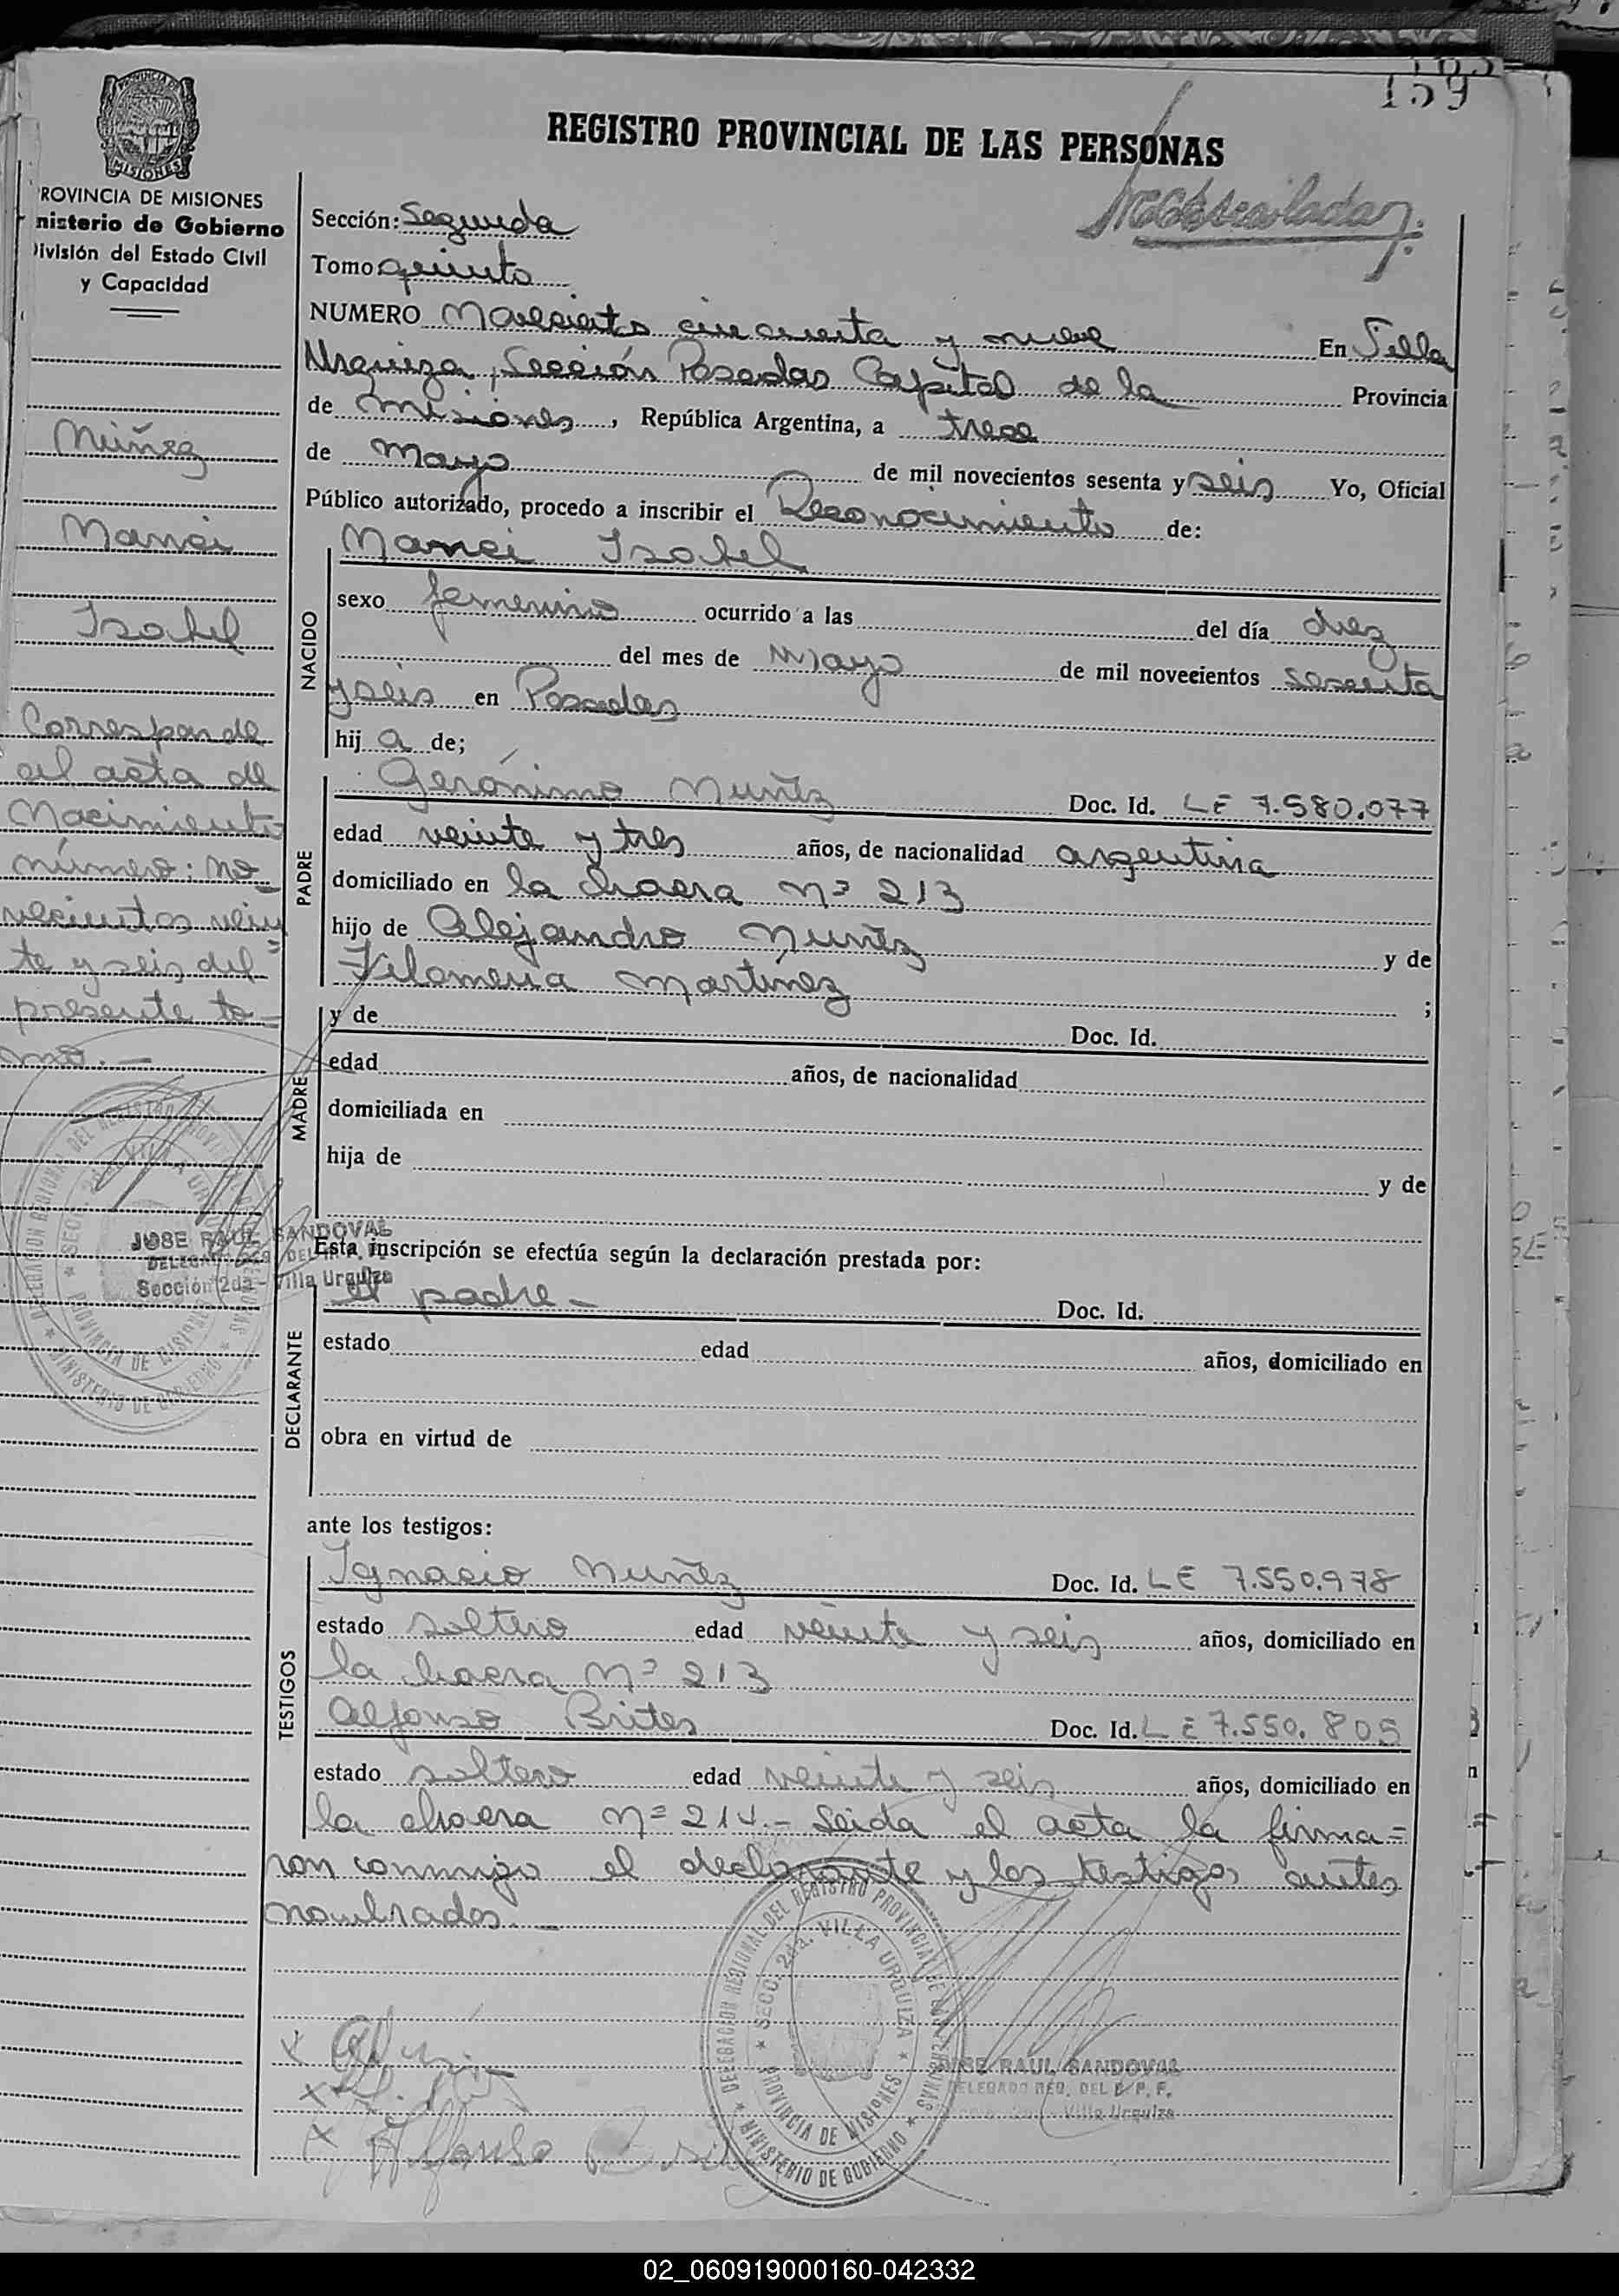 159
REGISTRO PROVINCIAL DE LAS PERSONAS
PROVINCIA DE
MISIONES
ROVINCIA DE MISIONES
nisterio de Gobierno
ivisión del Estado Civil
y Capacidad
Sección: Segunda
Tomo quinto
NUMERO Novecientos cincuenta y nueve En Villa
Urquiza, Sección Posadas Capital de la Provincia
de Misiones, República Argentina, a trece
de Mayo de mil novecientos sesenta y seis Yo, Oficial
Público autorizado, procedo a inscribir el Reconocimiento de:
Núñez
Manci
Isabel
Corresponde
al acta de
Nacimiento
número: no
vecientos vein
te y seis del
presente to=
mo.—
NACIDO
Manci Isabel
sexo femenino ocurrido a las del día diez
del mes de Mayo de mil novecientos sesenta
y seis en Posadas
hij a de;
PADRE
Gerónimo Nuñez Doc. Id. LE 7.580.077
edad veinte y tres años, de nacionalidad argentina
domiciliado en la chacra Nº 213
hijo de Alejandro Nuñez y de
Filomena Martínez ;
MADRE
y de Doc. Id.
edad años, de nacionalidad
domiciliada en
hija de y de
JOSE RAUL SANDOVAL
DELEGADO REG. DEL R. P. P.
Sección 2da - Villa Urquiza
Esta inscripción se efectúa según la declaración prestada por:
DECLARANTE
el padre - Doc. Id.
estado edad años, domiciliado en
obra en virtud de
ante los testigos:
TESTIGOS
Ignacio Nuñez Doc. Id. LE 7.550.978
estado soltero edad veinte y seis años, domiciliado en
la chacra Nº 213
Alfonso Brites Doc. Id. LE 7.550.805
estado soltero edad veinte y seis años, domiciliado en
la chacra Nº 214.- Leida el acta la firma=
ron conmigo el declarante y los testigos antes
nombrados.—
DELEGACION REGIONAL DEL REGISTRO PROVINCIAL DE LAS PERSONAS
SECC. 2da. VILLA URQUIZA
PROVINCIA DE MISIONES
MINISTERIO DE GOBIERNO
JOSE RAUL SANDOVAL
DELEGADO REG. DEL R. P. P.
Villa Urquiza
Alfonso
02_060919000160-042332